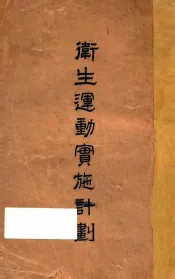 衛生運動實施計劃